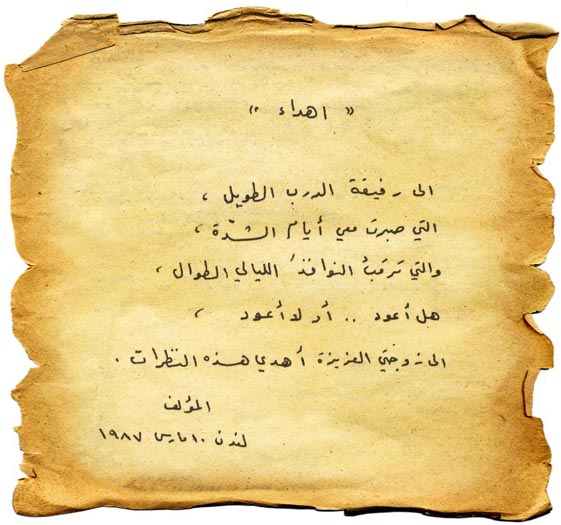 « اهداء »
الى رفيقة الدرب الطويل ،
التي صبرت معي أيام الشدّة ،
والتي ترقبُ النوافذُ الليالي الطوال ،
هل أعود .. أو لا أعود ،
الى زوجتي العزيزة أهدي هذه النظرات .
المؤلف
لندن ١٠ مارس ١٩٨٧